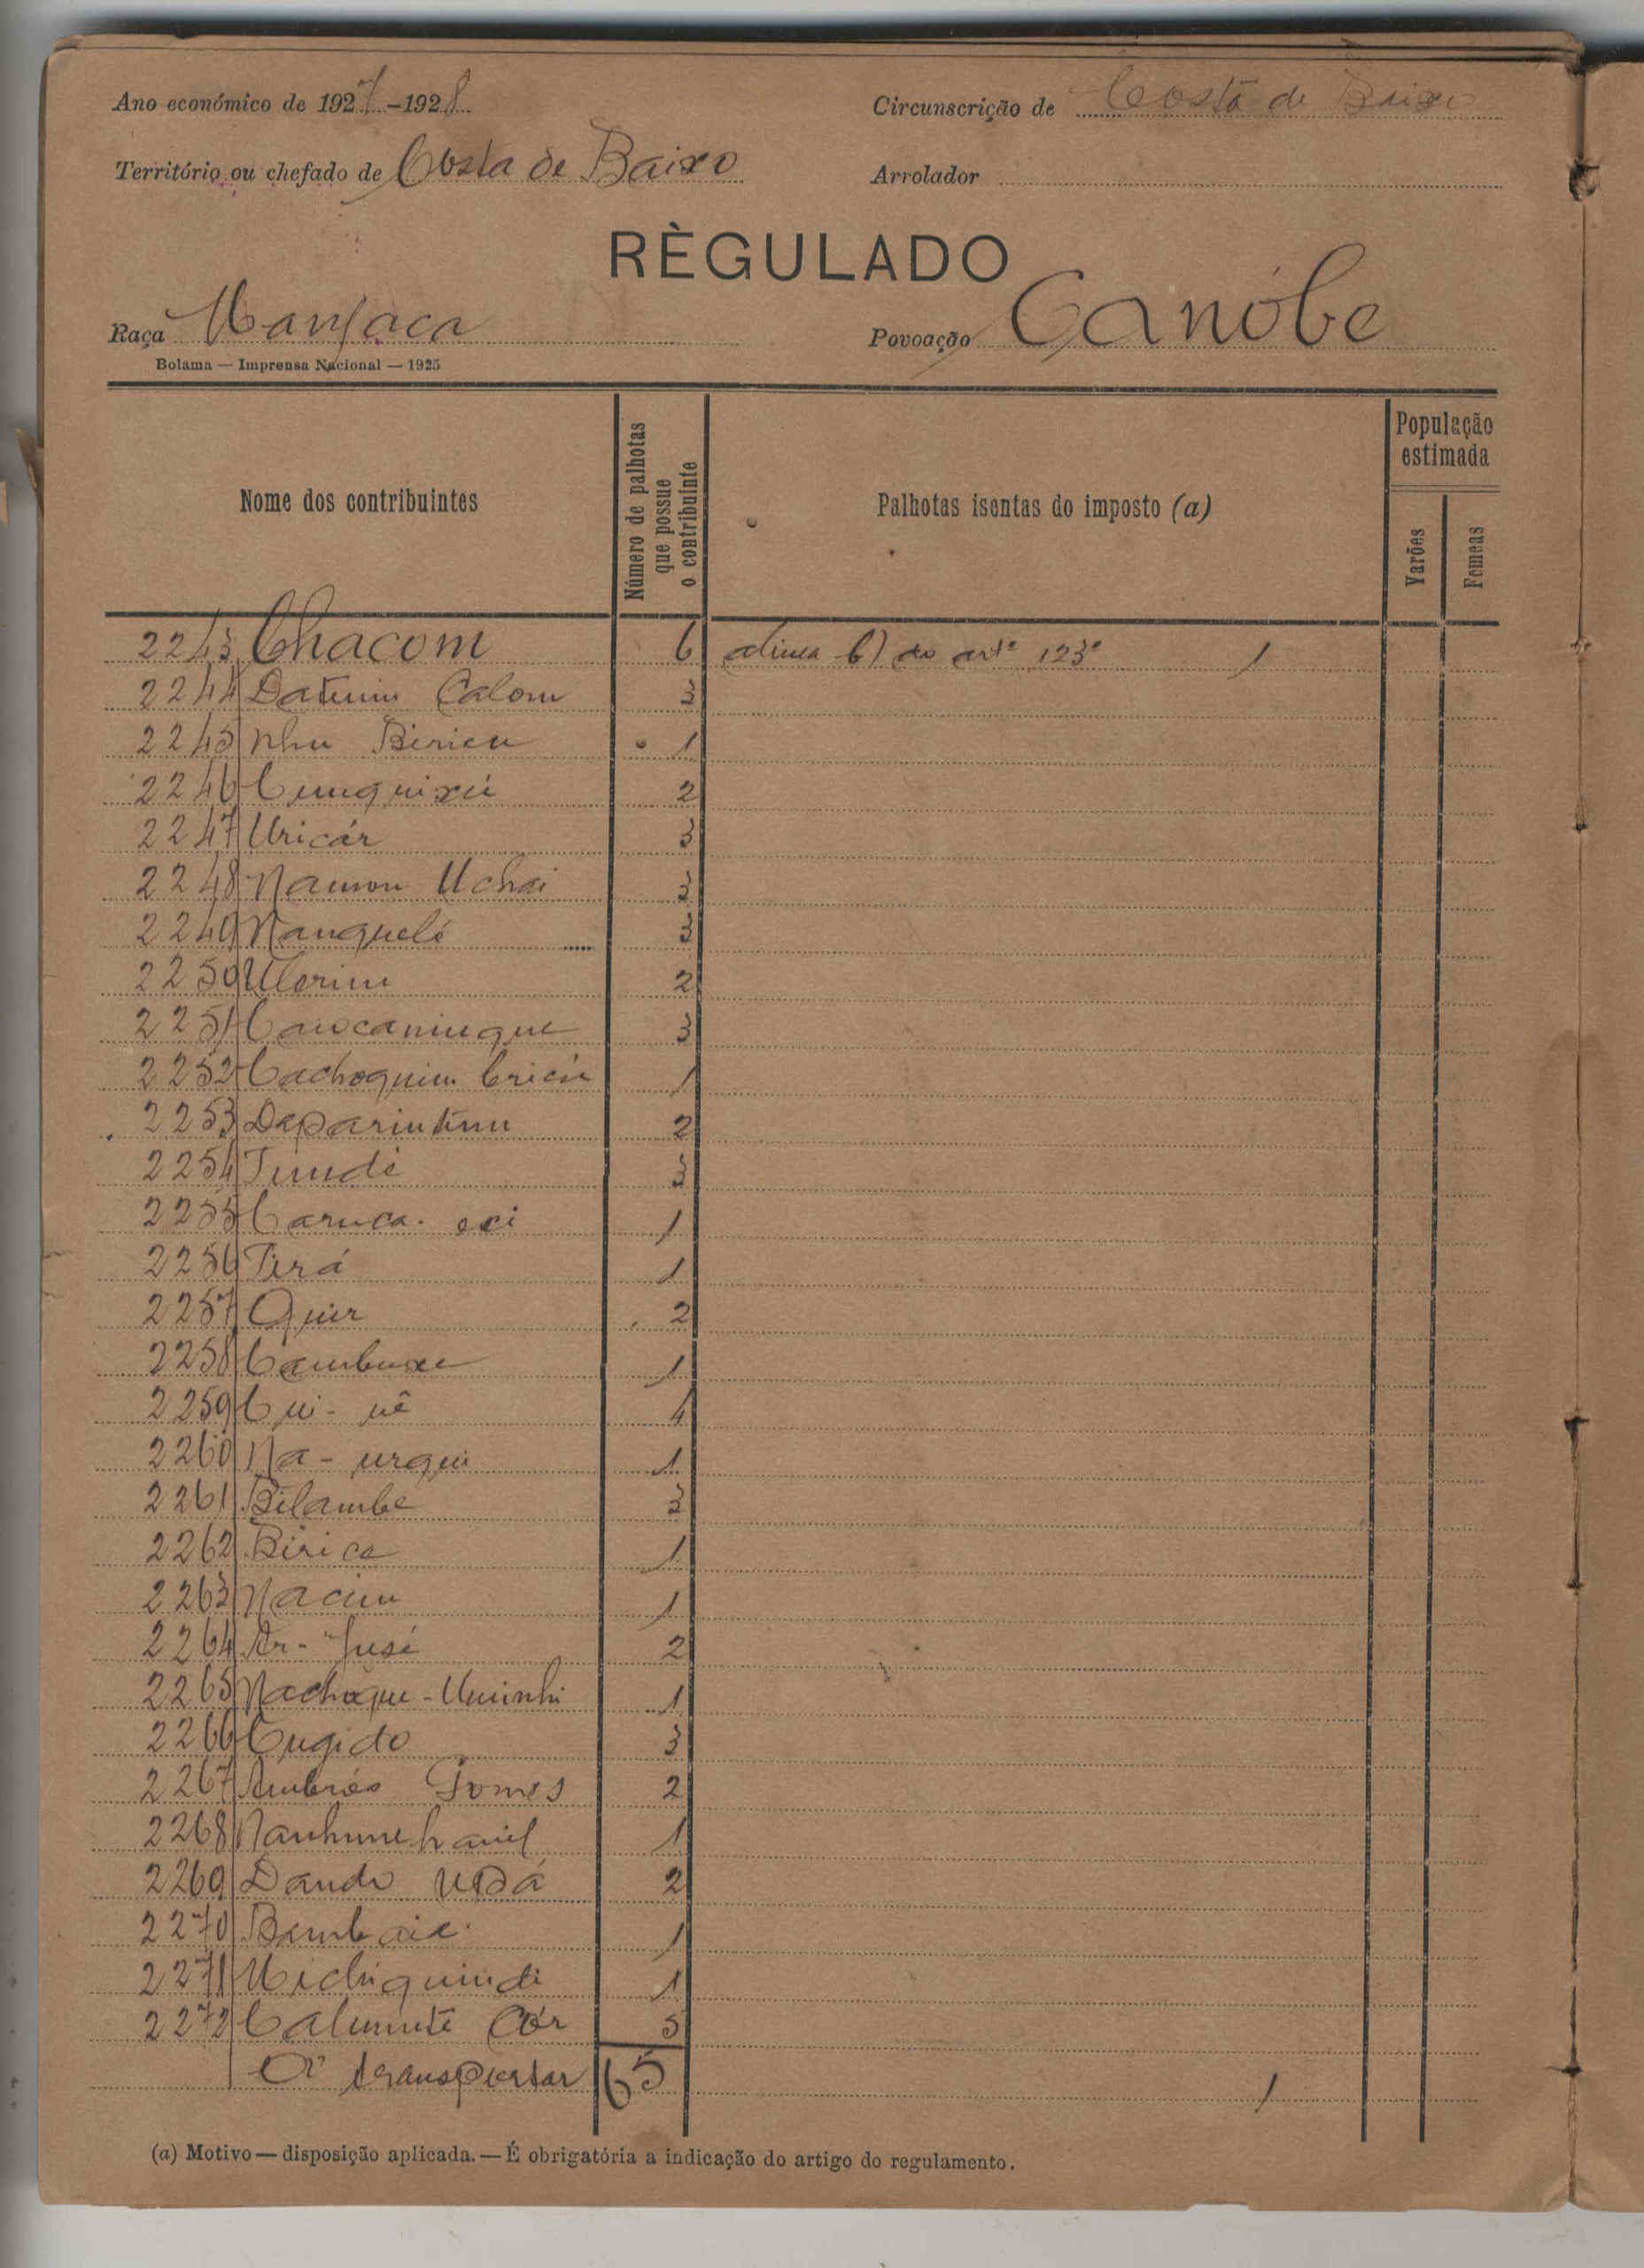 Ano económico de 1927-1928 Circunscrição de Costa de Baixo
Território ou chefado de Costa de Baixo Arrolador
RÈGULADO
Raça Manjaca Povoação Canóbe
Bolama — Imprensa Nacional — 1925
Nome dos contribuintes
Número de palhotas que possue o contribuinte
Palhotas isentas do imposto (a)
População estimada
Varões
Femeas
2243 Chacom 6 alinea b) do artº 123º 1
2244 Calom 3
2245 Nhu Biricu 1
2246 Cunquixú 2
2247 Uricár 3
2248 Namon Uchai 3
2249 Nanquelé 3
2250 Ulorim 2
2251 3
2252 Cachoquim 1
2253 2
2254 3
2255 Caruca 1
2256 Tirá 1
2257 Quir 2
2258 1
2259 Cui-uê 4
2260 Na-urqui 1
2261 Bilambe 3
2262 Birica 1
2263 Nacim 1
2264 2
2265 Nachoque-Uminhi 1
2266 Cugido 3
2267 Ambrós Gomes 2
2268 1
2269 Dando 2
2270 Bambaia 1
2271 Michiquindi 1
2272 Calumite Cór 5
A transportar 65 1
(a) Motivo — disposição aplicada. — É obrigatória a indicação do artigo do regulamento.